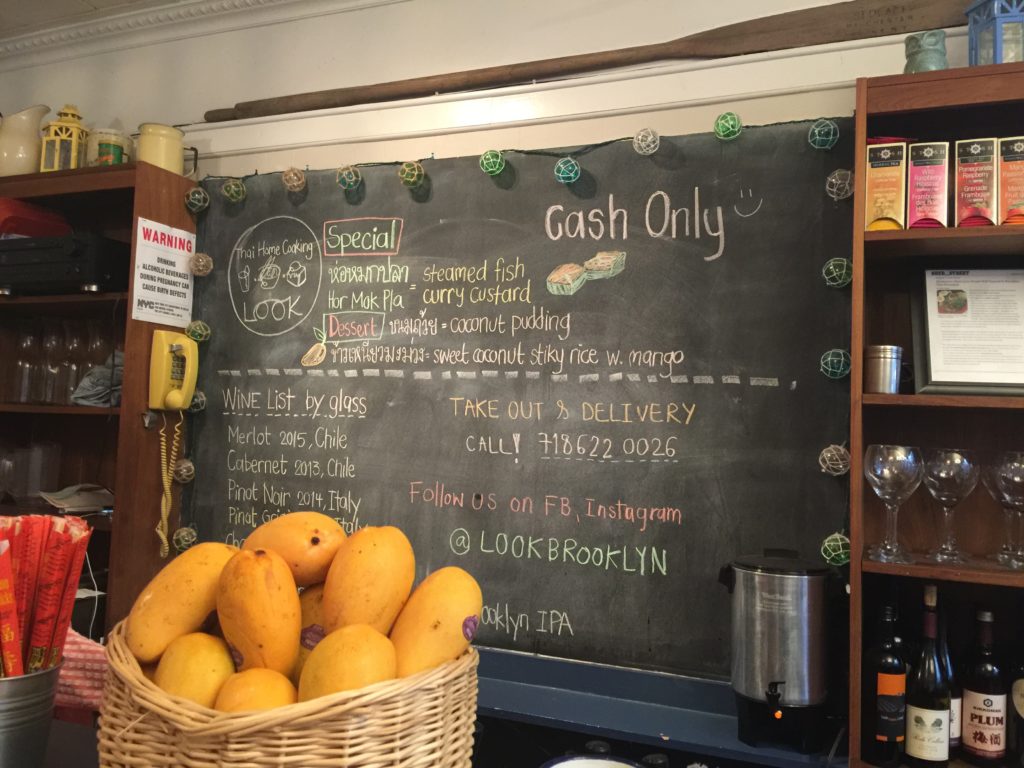 WARNING
DRINKING
ALCOHOLIC BEVERAGES
DURING PREGNANCY CAN
CAUSE BIRTH DEFECTS
NYC
Thai Home Cooking
LOOK
Special
ห่อหมกปลา
Hor Mok Pla
= steamed fish
curry custard
Dessert ขนมถ้วย = coconut pudding
ข้าวเหนียวมะม่วง = sweet coconut stiky rice w. mango
Cash Only
WINE LIST by glass
Merlot 2015, Chile
Cabernet 2013, Chile
Pinot Noir 2014, Italy
Pinot
Italy
TAKE OUT & DELIVERY
CALL! 718 622 0026
Follow US on FB, Instagram
@ LOOKBROOKLYN
ooklyn IPA
Wild
Raspberry
Hibiscus
Pomegranate
Raspberry
Grenade
Framboise
KIKKOMAN
PLUM
梅酒